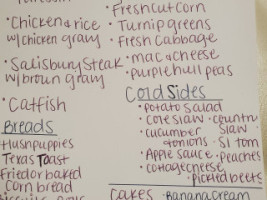 • Chicken & rice
w/ chicken gravy
• Salisbury Steak
w/ brown gravy
• Catfish
Breads
Hushpuppies
Texas Toast
Fried or baked
Corn bread
• Fresh Cut Corn
• Turnip greens
• Fresh Cabbage
• mac & cheese
• purple hull peas
Cold Sides
• Potato Salad
• Cole slaw • country
slaw
• cucumber
onions • Sl tom
• Apple sauce • peaches
• Cottage cheese
• pickled beets
Cakes • Banana Cream